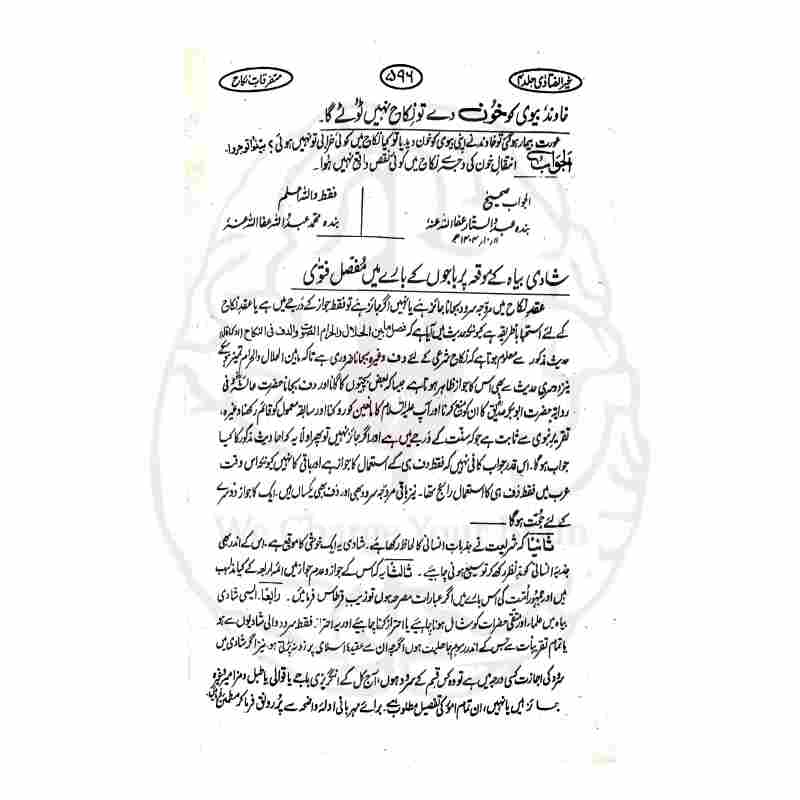 متفرقات نکاح
۵۹۶
خیر الفتاویٰ جلد ۴
خاوند بیوی کو خون دے تو نکاح نہیں ٹوٹے گا۔
عورت بیمار ہوگئی تو خاوند نے اپنی بیوی کو خون دیدیا تو کیا نکاح میں کوئی خرابی تو نہیں ہوئی؟ بینوا توجروا۔
الجواب انتقال خون کی وجہ سے نکاح میں کوئی نقص واقع نہیں ہوا۔
الجواب صحیح
فقط واللہ اعلم
بندہ عبدالستار عفا اللہ عنہ
بندہ محمد عبداللہ عفا اللہ عنہ
شادی بیاہ کے موقعہ پر باجوں کے بارے میں مفصل فتویٰ
عقد نکاح میں مروجہ سرود بجانا جائز ہے یا نہیں اگر جائز ہے تو فقط جواز کے درجے میں ہے یا عقد نکاح
کے لئے استحبابا طریقہ ہے کیونکہ حدیث میں آیا ہے کہ فصل ما بین الحلال والحرام الصوت والدف فی النکاح
حدیث مذکور سے معلوم ہوتا ہے کہ نکاح شرعی کے لئے دف وغیرہ بجانا ضروری ہے تاکہ مابین الحلال والحرام تمیز ہو سکے
نیز دوسری حدیث سے بھی اس کا جواز ظاہر ہوتا ہے جیسا کہ بعض بچیوں کا گانا اور دف بجانا حضرت عائشہؓ کی
روایۃ حضرت ابوبکر صدیقؓ کا ان کو منع کرنا اور آپ علیہ السلام کا مانعین کو روکنا اور سابقہ معمول کو قائم رکھنا وغیرہ،
تقریر نبوی سے ثابت ہے جو کہ سنت کے درجے میں ہے اور اگر جائز نہیں تو پھر اولاً یہ کہ احادیث مذکور کا کیا
جواب ہوگا۔ اس قدر جواب کافی نہیں کہ فقط دف ہی کے استعمال کا جواز ہے اور باقی کا نہیں کیونکہ اس وقت
عرب میں فقط دف ہی کا استعمال رائج تھا۔ نیز باقی مروجہ سرود بھی اور دف بھی یکساں ہیں۔ ایک کا جواز دوسرے
کے لئے حجت ہوگا
ثانیاً کہ شریعت نے جذبات انسانی کا لحاظ رکھا ہے۔ شادی یہ ایک خوشی کا موقع ہے۔ اس کے اندر بھی
جذبۂ انسانی کو مدنظر رکھ کر توسیع ہونی چاہیے۔ ثالثاً یہ کہ اس کے جواز و عدم جواز میں ائمہ اربعہ کے کیا مذاہب
ہیں اور جمہور امت کی اس بارے میں اگر عبارات مصرحہ ہوں تو زیب قرطاس فرمائیں۔ رابعاً۔ ایسی شادی
بیاہ میں علماء اور متقی حضرات کو شامل ہونا چاہیے یا احتراز کرنا چاہیے اور یہ احتراز فقط سرود والی شادیوں سے ہو
یا تمام تقریبات سے جس کے اندر رسوم جاہلیت ہوں اگرچہ ان سے عقیدۂ اسلامی پر زد نہ پڑتی ہو۔ نیز اگر شادی میں
سرود کی اجازت کسی درجہ میں ہے تو وہ کس قسم کے سرود ہوں، آج کل کے انگریزی باجے یا قوالی یا طبل و مزامیر وغیرہ
جائز ہیں یا نہیں، ان تمام امور کی تفصیل مطلوب ہے۔ برائے مہربانی ادلۂ واضحہ سے پُر رونق فرما کر مطمئن